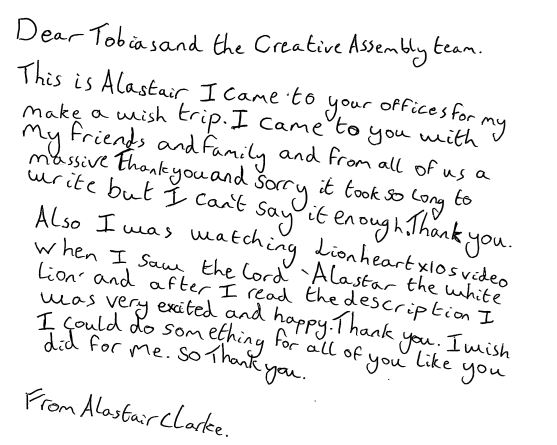 Dear Tobias and the Creative Assembly team.
This is Alastair I came to your offices for my
make a wish trip. I came to you with
My friends and family and from all of us a
massive Thankyou and sorry it took so long to
write but I can't say it enough. Thank you.
Also I was watching Lionheartx10s video
when I saw the Lord Alastar the white
Lion and after I read the description I
was very excited and happy. Thank you. I wish
I could do something for all of you like you
did for me. So Thank you.
From Alastair Clarke.